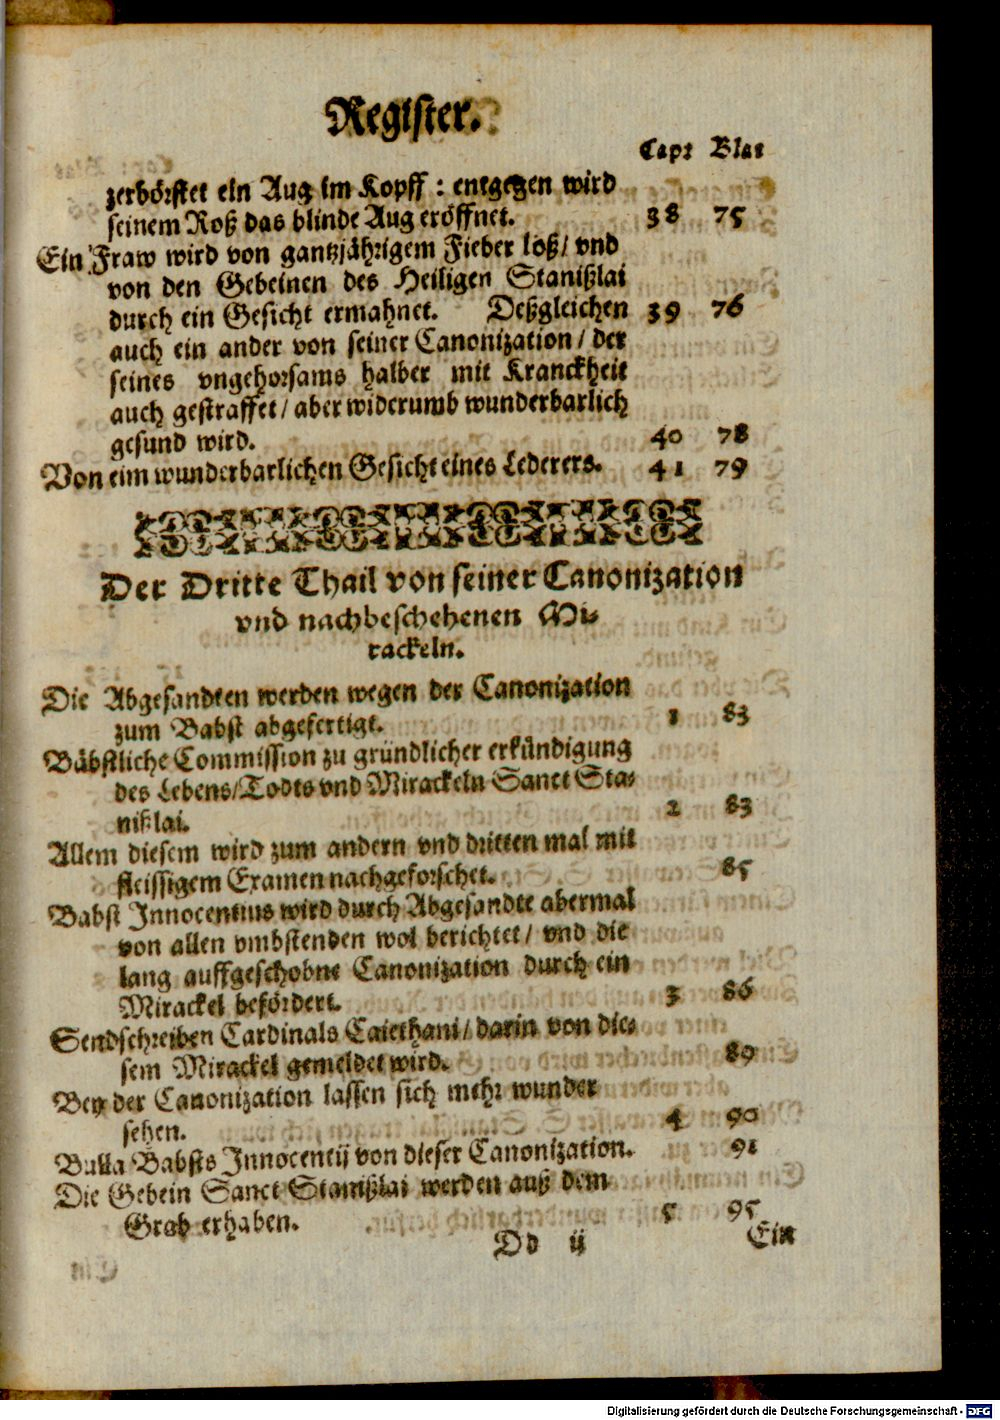 Register.
Capt Blat
zerbörstet ein Aug im Kopff : entgegen wird
seinem Roß das blinde Aug eröffnet. 38 75
Ein Fraw wird von gantzjährigem Fieber loß/ vnd
von den Gebeinen des Heiligen Stanißlai
durch ein Gesicht ermahnet. Deßgleichen 39 76
auch ein ander von seiner Canonization/ der
seines vngehorsams halber mit Kranckheit
auch gestraffet/ aber widerumb wunderbarlich
gesund wird. 40 78
Von eim wunderbarlichen Gesicht eines Lederers. 41 79
Der Dritte Thail von seiner Canonization
vnd nachbeschehenen Mi-
rackeln.
Die Abgesandten werden wegen der Canonization
zum Babst abgefertigt. 1 83
Bäbstliche Commission zu gründlicher erkündigung
des Lebens/ Todts vnd Mirackeln Sanct Sta-
nißlai. 2 83
Allem diesem wird zum andern vnd dritten mal mit
fleissigem Examen nachgeforschet. 85
Babst Innocentius wird durch Abgesandte abermal
von allen vmbstenden wol berichtet/ vnd die
lang auffgeschobne Canonization durch ein
Mirackel befördert. 3 86
Sendschreiben Cardinals Caiethani/ darin von die-
sem Mirackel gemeldet wird. 89
Bey der Canonization lassen sich mehr wunder
sehen. 4 90
Bulla Babsts Innocentij von dieser Canonization. 91
Die Gebein Sanct Stanißlai werden auß dem
Grab erhaben. 5 95
Dd ij Ein
Digitalisierung gefördert durch die Deutsche Forschungsgemeinschaft - DFG